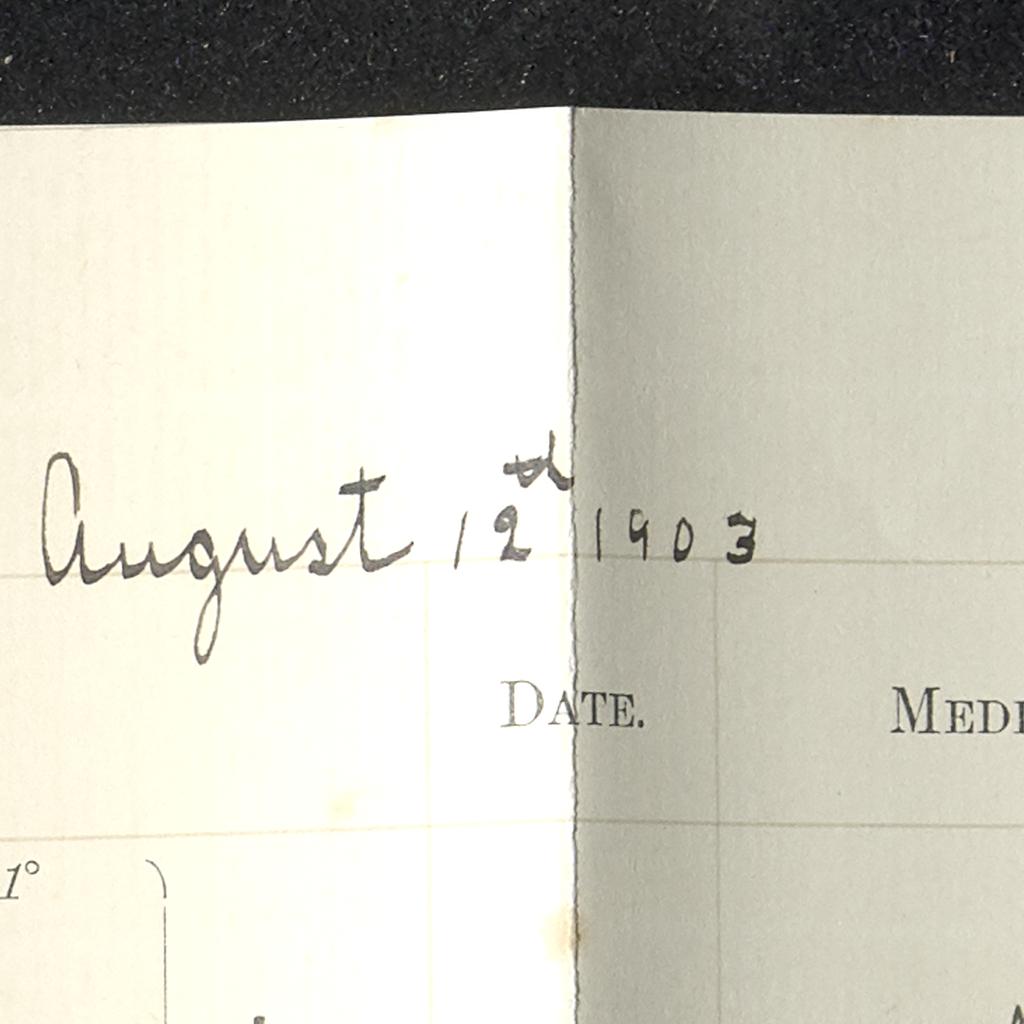 August 12th 1903
DATE.
1°